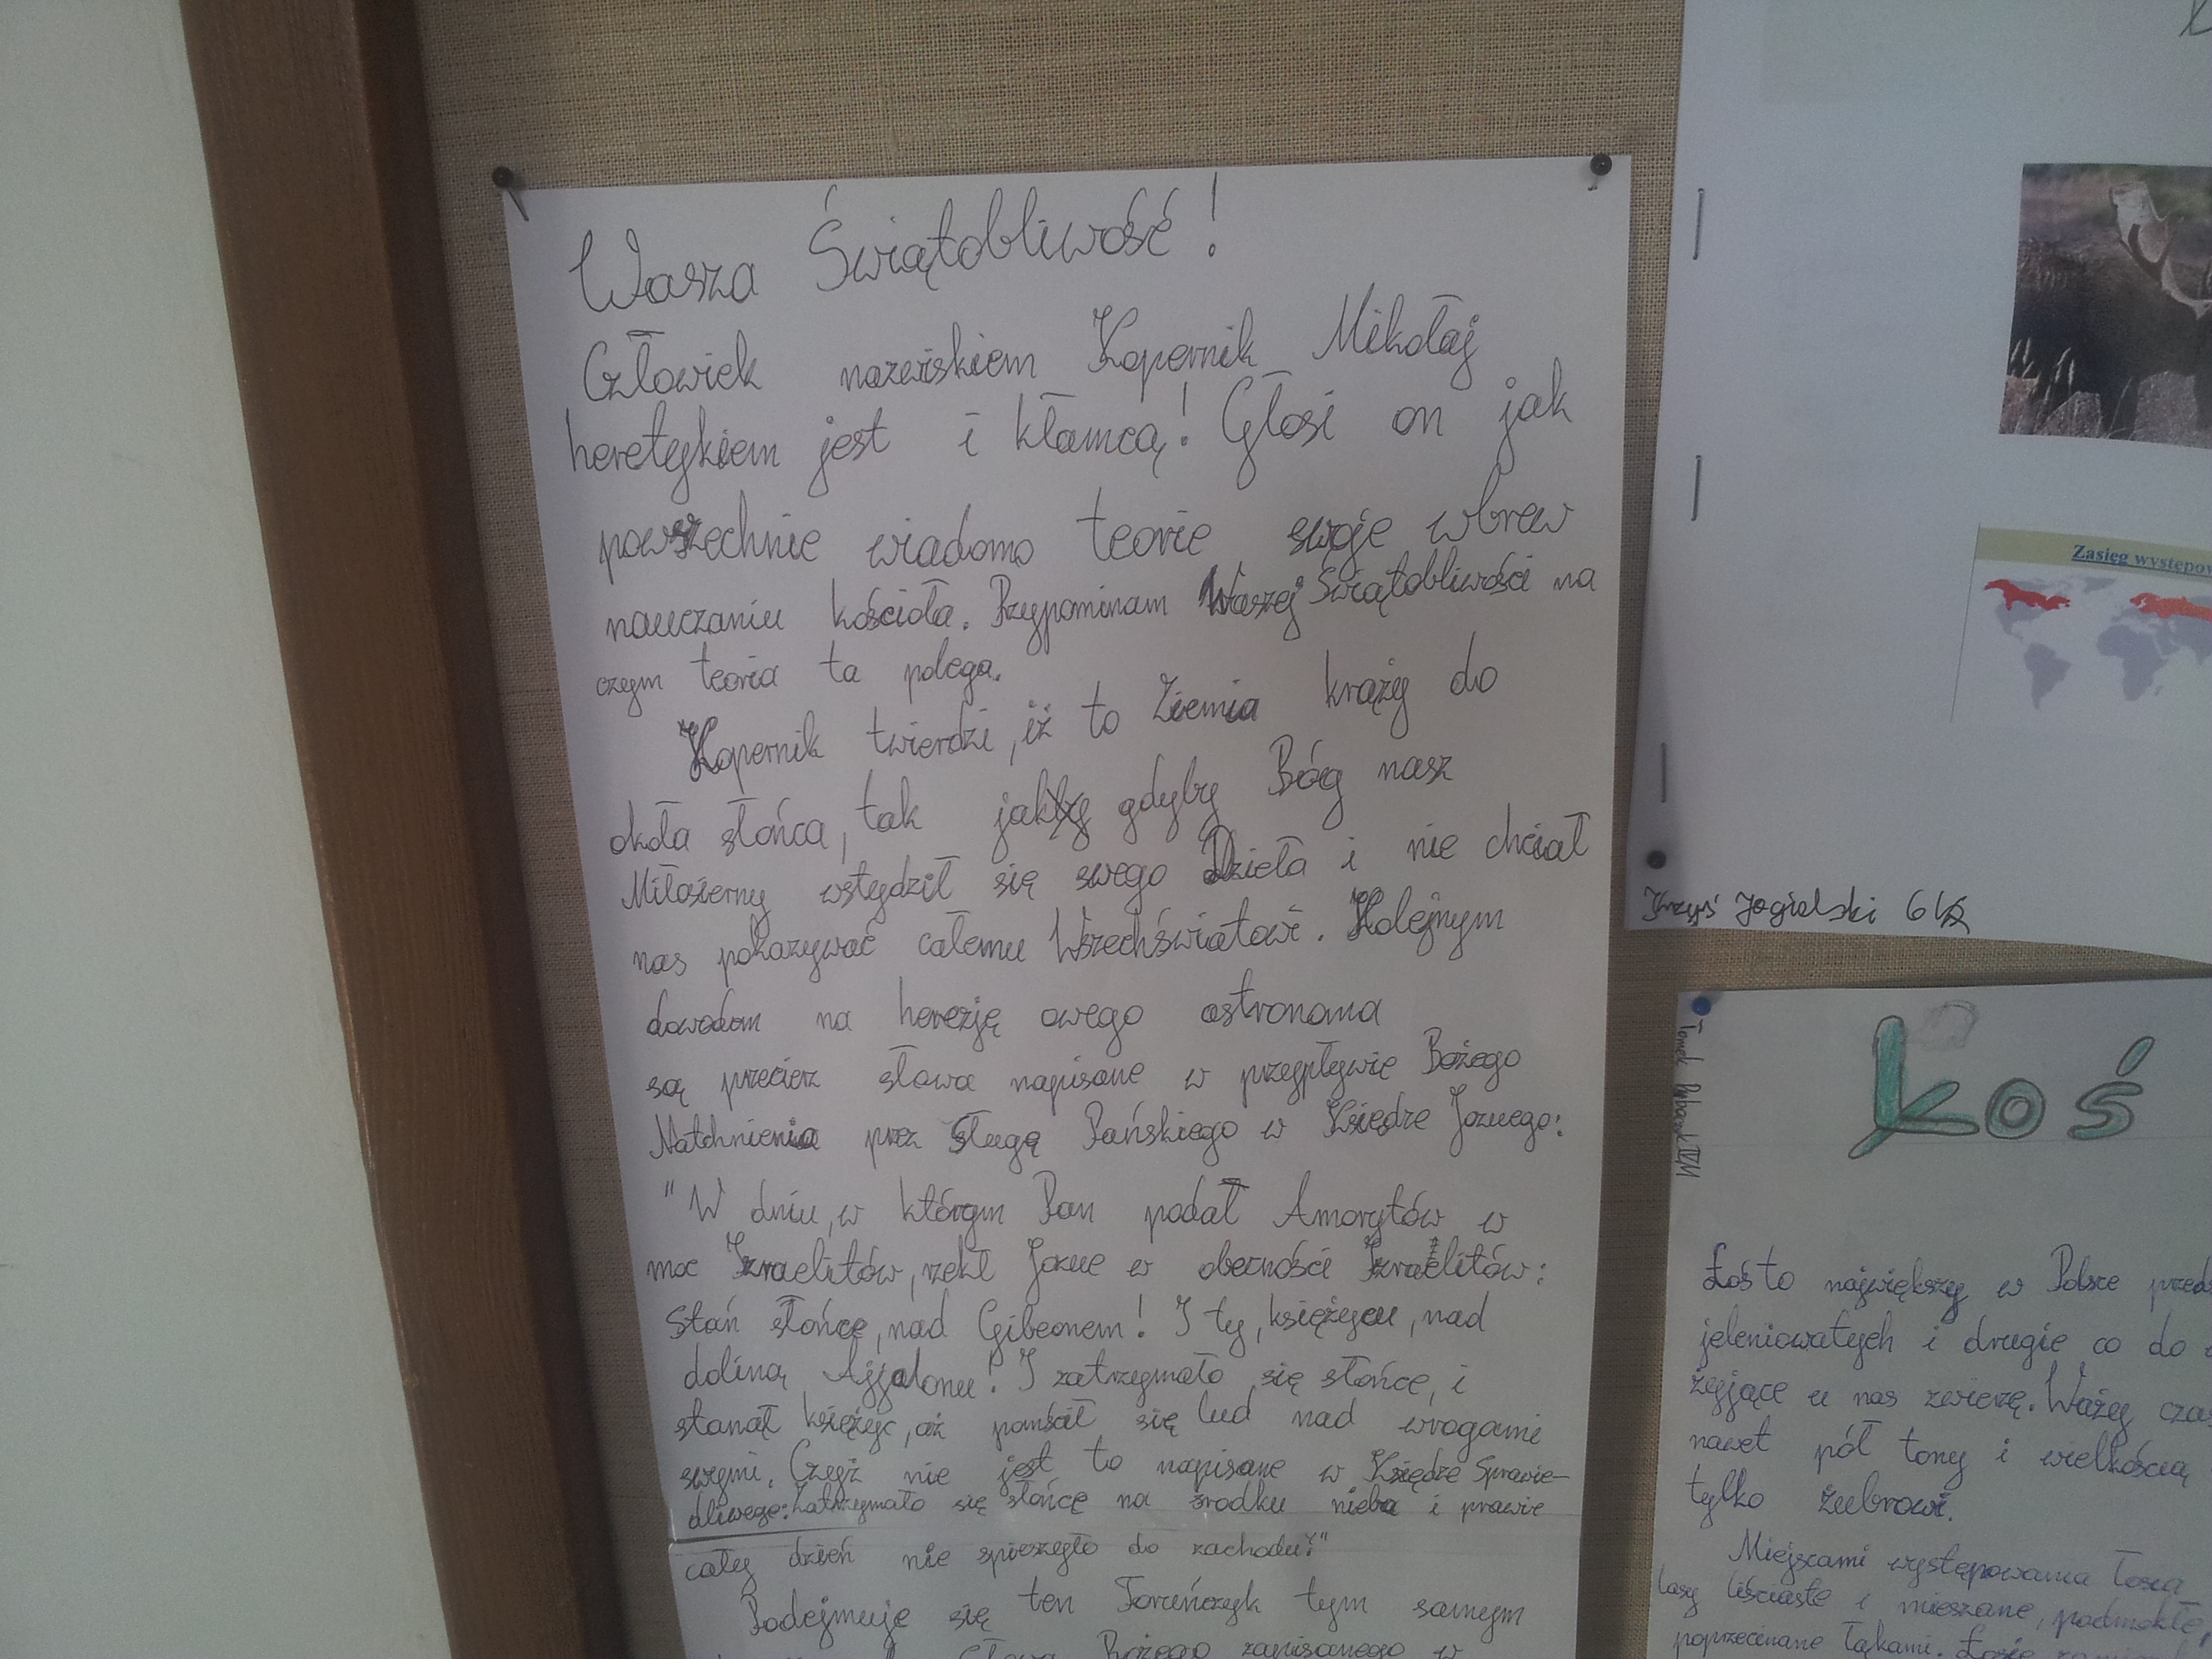 Wasza Świątobliwość!
Człowiek nazwiskiem Kopernik Mikołaj
heretykiem jest i kłamcą! Głosi on jak
powszechnie wiadomo teorie swoje wbrew
nauczaniu kościoła. Przypominam Waszej Świątobliwości na
czym teoria ta polega.
Kopernik twierdzi, iż to Ziemia krąży do
okoła słońca, tak jak gdyby Bóg nasz
Miłosierny wstydził się swego Dzieła i nie chciał
nas pokazywać całemu Wszechświatowi. Kolejnym
dowodem na herezję owego astronoma
są przecierz słowa napisane w przypływie Bożego
Natchnienia prez Sługę Pańskiego w Księdze Jozuego:
"W dniu, w którym Pan podał Amorytów w
moc Izraelitów, rzekł Jozue w obecności Izraelitów:
Stań słońce, nad Gibeonem! I ty, księżycu, nad
doliną Ajjalonu! I zatrzymało się słońce, i
stanął księżyc, aż pomścił się lud nad wrogami
swymi. Czyż nie jest to napisane w Księdze Sprawie-
dliwego: Zatrzymało się słońce na środku nieba i prawie
cały dzień nie spieszyło do zachodu?"
Podejmuje się ten Toruńczyk tym samym
Słowa Bożego zapisanego w
Zasięg występow
Krzyś Jagielski 6
Tomek
Łoś
Łoś to największy w Polsce przed
jeleniowatych i drugie co do
żyjące u nas zwierzę. Waży czas
nawet pół tony i wielkością
tylko żubrowi.
Miejscami występowania łosia
lasy liściaste i mieszane, podmokłe,
poprzecinane łąkami. Łosie